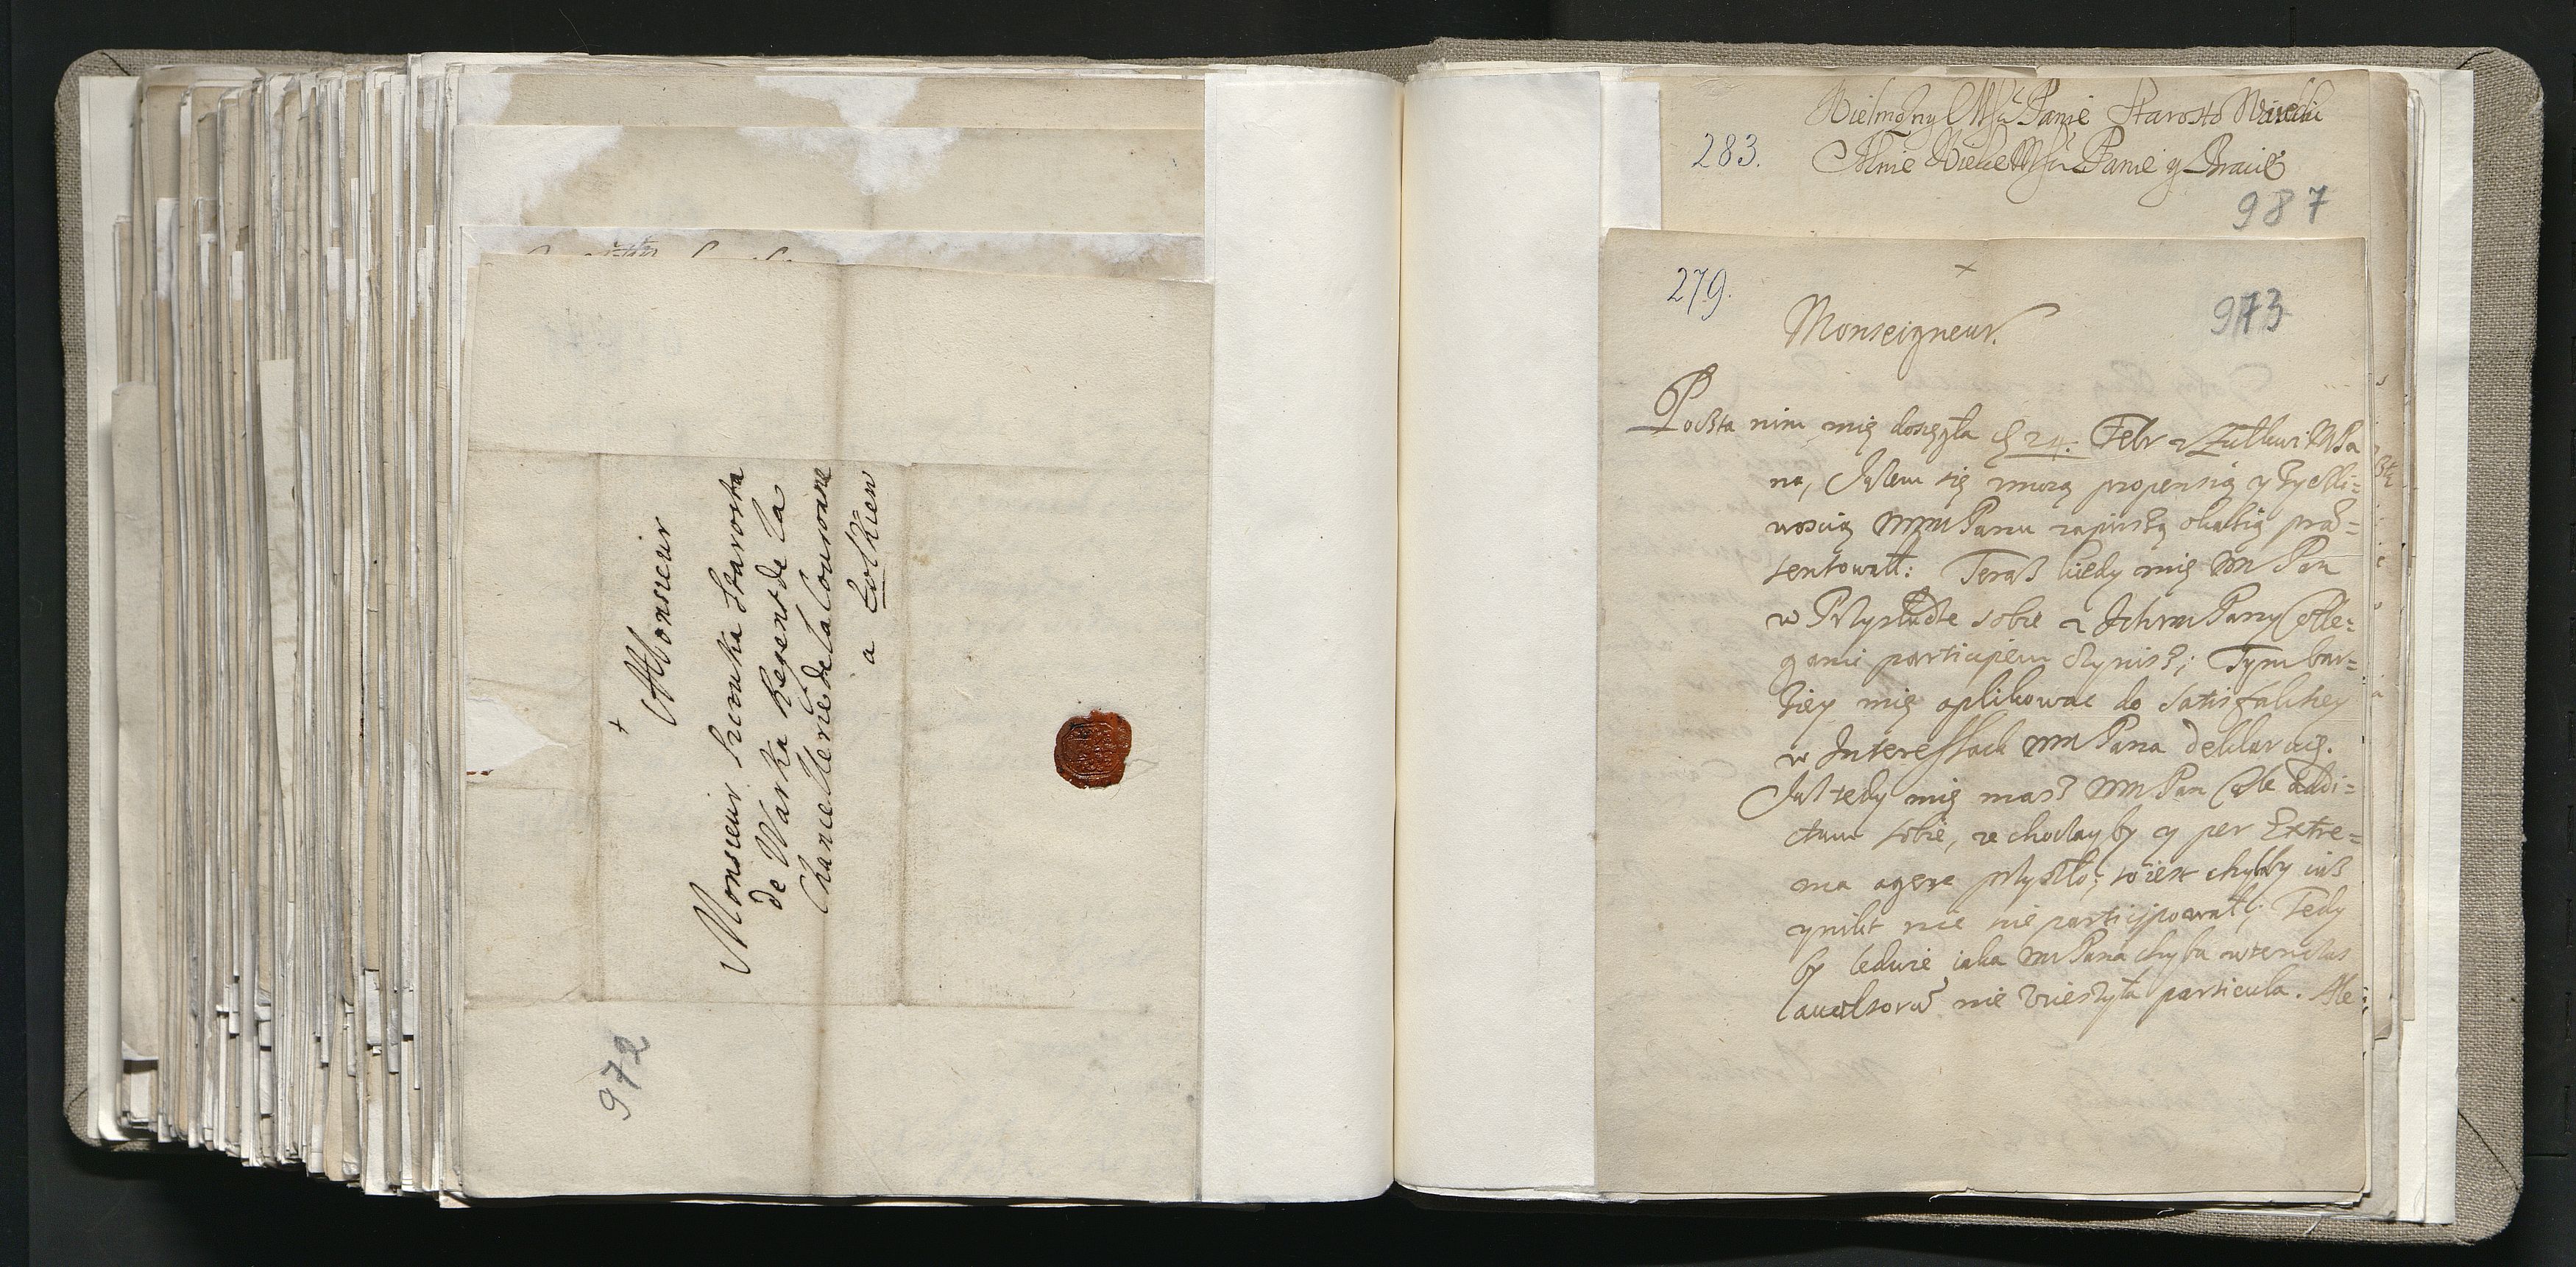 +
Monsieur
Monsieur Szczuka Starosta
de Warka Regent de la
Chancellerie de la Couronne
a Zolkiew
972
Wielmozny Mśći Panie Starosto Warecki
Mnie Wielce Mśći Panie y Bracie
283.
987
+
279.
973
Monseigneur.
Poczta nim mię doszęła 24. Febr z Zulkwi MPa
na, Jużem się moią propensią y życzli=
woscią mm Panu zapirszą okazią præ=
sentował: Teraz kiedy mię m Pan
w Przysłudze sobie z Ichm Pany Colle=
gami participem czynisz; Tym bar=
ziey mię aplikowac do Satisfakciey
w Interessach m Pana deklaruię.
Jusz tedy mię masz m Pan Ale addi=
ctum sobie, ze chocłayby y per Extre=
ma agere przyszło; to iest chybby iusz
y nikt nie participował; Tedy
by ledwie iaka m Pana chyba wtenczas
nie particula. Ale